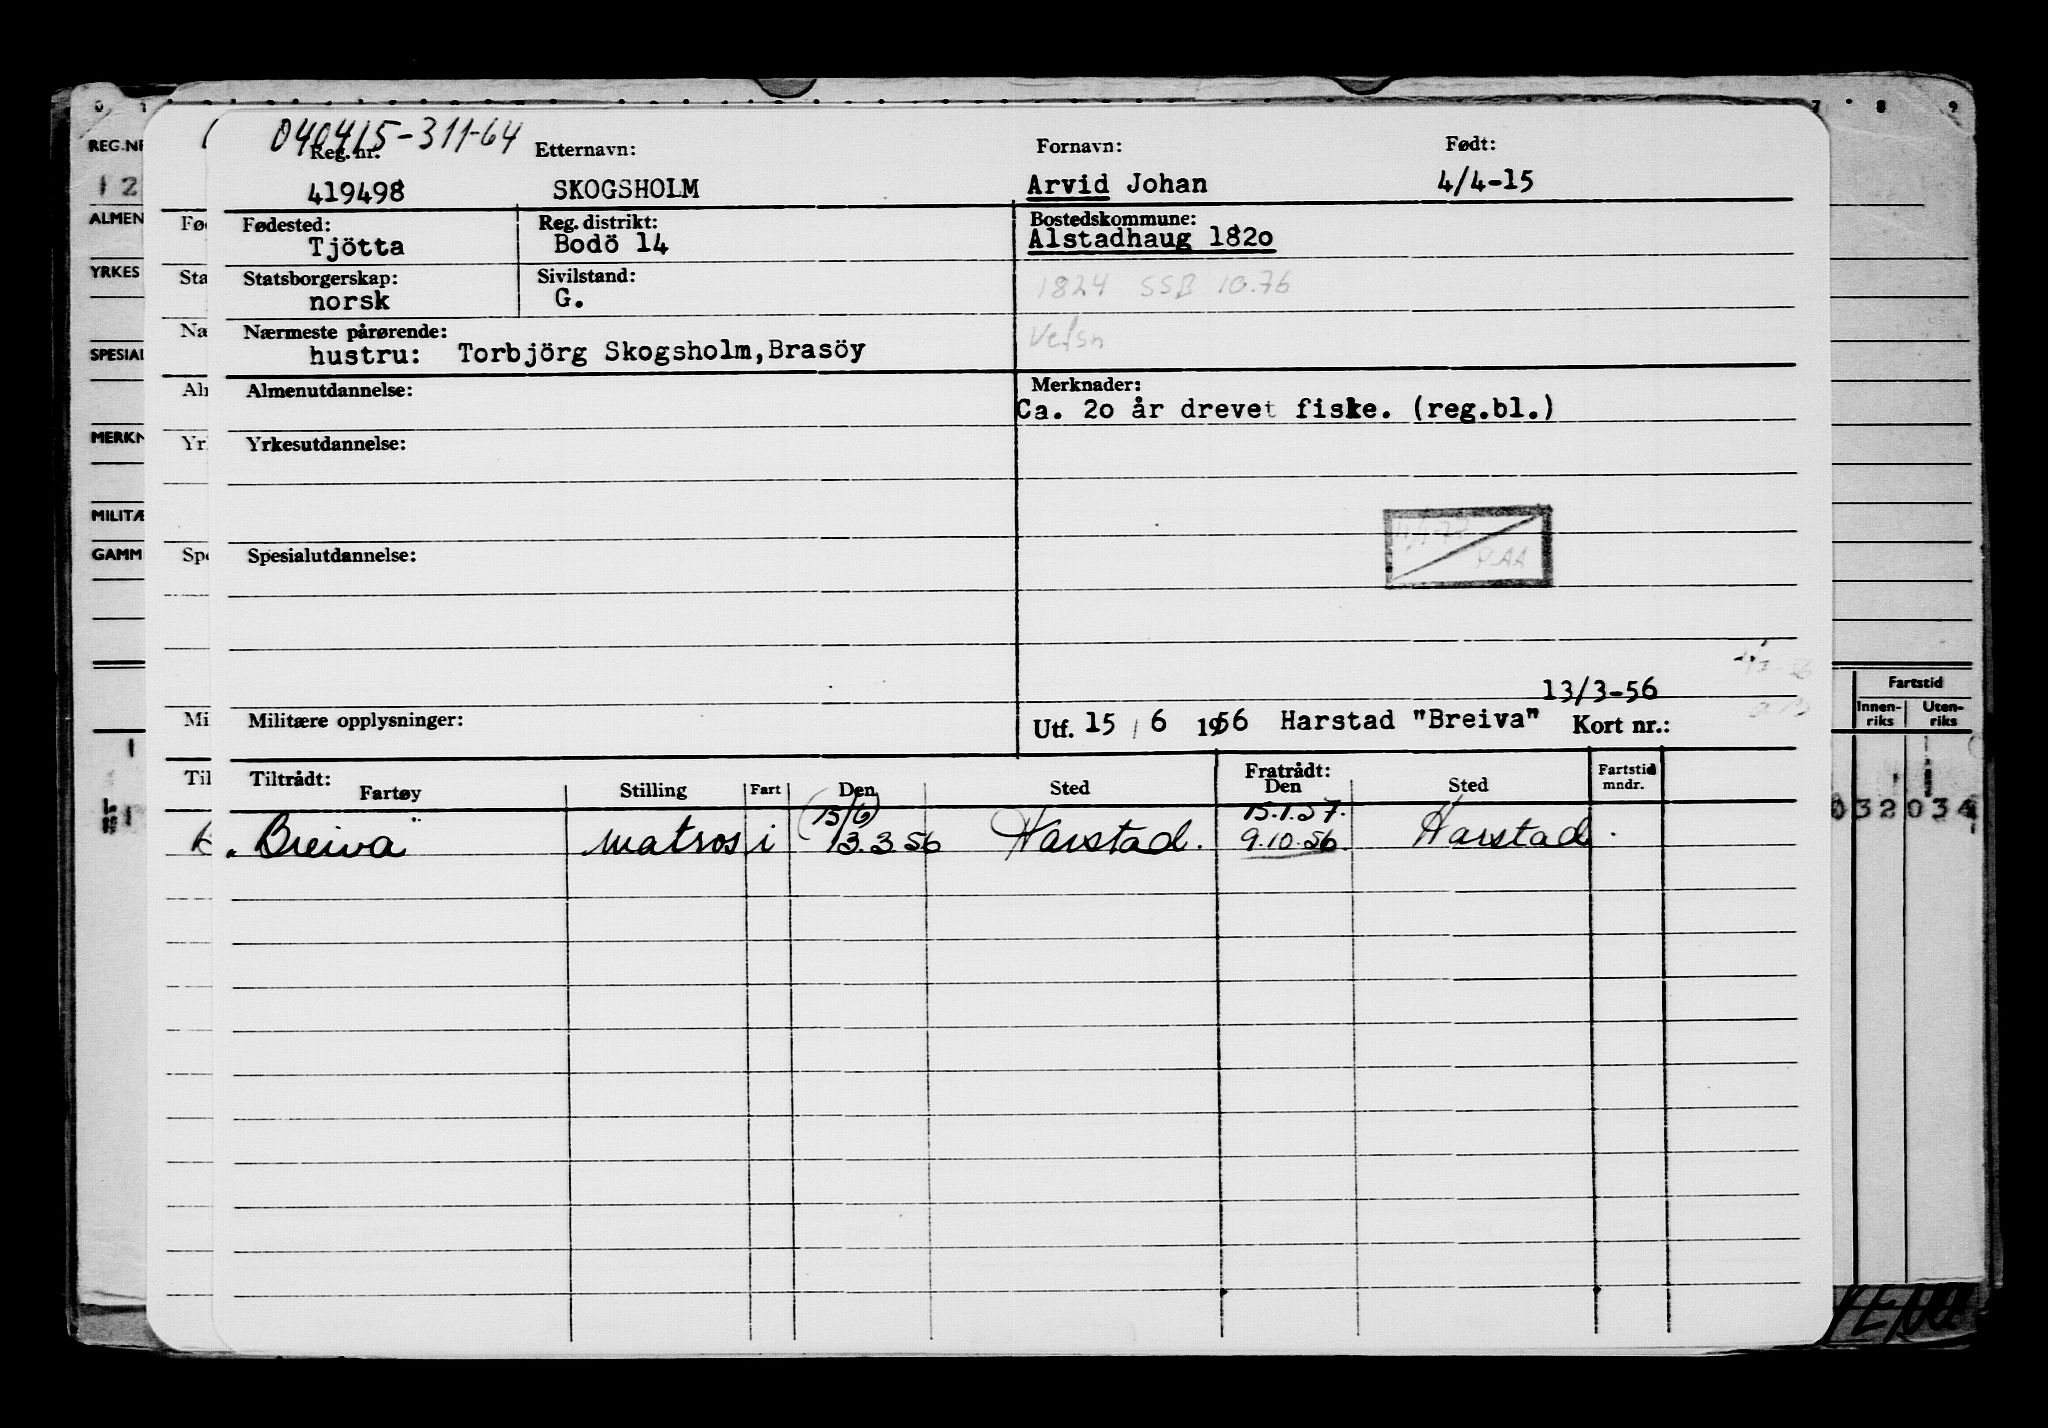 040415-311-64
Reg. nr. Etternavn: Fornavn: Født:
419498 SKOGSHOLM Arvid Johan 4/4-15
Fødested: Reg. distrikt: Bostedskommune:
Tjötta Bodö 14 Alstadhaug 182o
Statsborgerskap: Sivilstand: 1824 SSB 10.76
norsk G.
Nærmeste pårørende: Vefsn
hustru: Torbjörg Skogsholm, Brasöy
Almenutdannelse: Merknader:
Ca. 2o år drevet fiske. (reg.bl.)
Yrkesutdannelse:
Spesialutdannelse:
13/3-56
Militære opplysninger: Utf. 15 / 6 1956 Harstad "Breiva" Kort nr.:
Tiltrådt: Fratrådt:
Fartøy Stilling Fart Den Sted Den Sted Fartstid mndr.
(15/6) 15.1.57.
"Breiva" matros i 13.3.56 Harstad. 9.10.56. Harstad
0 1 7 8 9
REG.NR
1 2
ALMEN
YRKES
SPESIAL
MERKN
MILITÆ
GAMM
Fød
Sta
Næ
Alr
Yrl
Spe
Mi
Til
Fartstid
Innen-riks Uten-riks
032 034